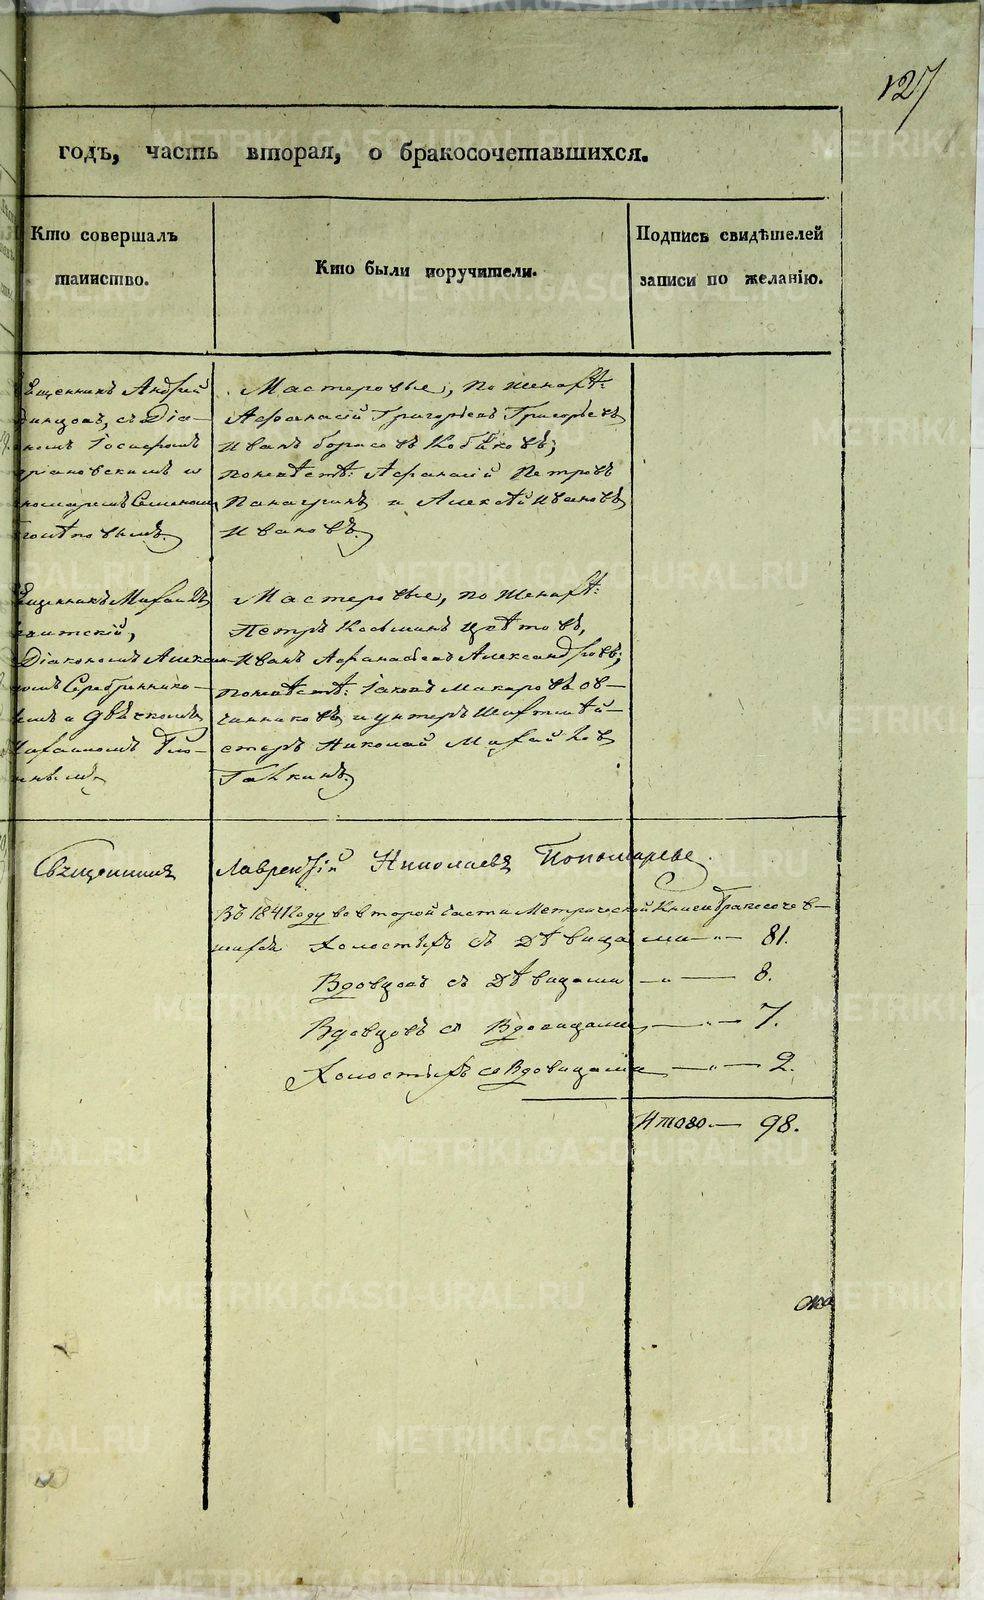 127
годъ, часть вторая, о бракосочетавшихся.
Кто совершалъ
таинство.
Кто были поручители.
Подпись свидѣтелей
записи по желанію.
Андрей
съ Діа-
Іосифомъ
Семеномъ
Мастеровые, по женихѣ:
Афанасій Григорьевъ Григорьевъ
Иванъ Борисовъ
по невѣстѣ: Афанасій Петровъ
и Алексѣй Ивановъ
Ивановъ.
Михаилъ
Діакономъ Алексан-
Серебреннико-
Мастеровые, по женихѣ:
Петръ Косьминъ Цвѣтовъ,
Иванъ Афанасьевъ Александровъ;
по невѣстѣ: Іаковъ Макаровъ Ов-
чинниковъ и унтеръ шихтмей-
стеръ Николай Михайлов
Галкинъ.
Священникъ Лаврентій Николаевъ Пономаревъ
Въ 1841 Году во второй части Метрической Книги Бракосочев-
шихся Холостыхъ съ Дѣвицами — 81.
Вдовцовъ съ Дѣвицами — 8.
Вдовцовъ съ Вдовицами — 7.
Холостыхъ со Вдовицами — 2.
Итого — 98.
METRIKI.GASO-URAL.RU